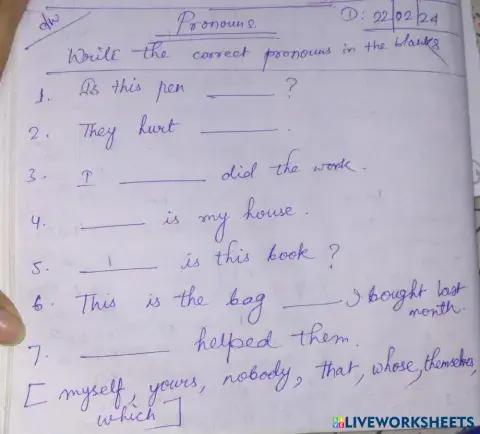 dw
Pronouns
D: 22/02/24
Write the correct pronouns in the blanks
1. Is this pen ______ ?
2. They hurt ______ .
3. I ______ did the work.
4. ______ is my house.
5. ______ is this book ?
6. This is the bag ______ I bought last month.
7. ______ helped them.
[ myself, yours, nobody, that, whose, themselves,
which ]
LIVEWORKSHEETS